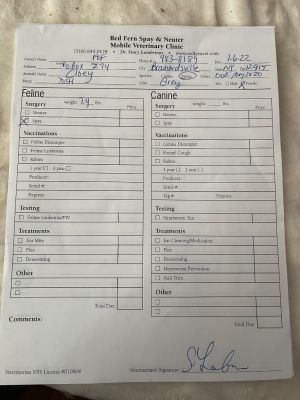 Red Fern Spay & Neuter
Mobile Veterinary Clinic
Dr. Stacy
Owner's Name PCF Phone # Date 1-6-22
Address PO Box City State NY Zip
Animal's Name Species: Canine Feline Other
Breed DSH Color Grey Sex: Male Female
Feline
Surgery weight lbs. Price
Neuter
X Spay
Vaccinations
Feline Distemper
Feline Leukemia
Rabies
1 year 3 year
Producer
Serial #:
Expires:
Testing
Feline Leukemia/FIV
Treatments
Ear Mite
Flea
Deworming
Other
Total Due
Comments:
Canine
Surgery weight lbs. Price
Neuter
Spay
Vaccinations
Canine Distemper
Kennel Cough
Rabies
1 year 3 year
Producer
Serial #:
Tag #: Expires:
Testing
Heartworm Test
Treatments
Ear Cleaning/Medication
Flea
Deworming
Heartworm Prevention
Nail Trim
Other
Total Due
Veterinarian NYS License #010904
Veterinarian's Signature: